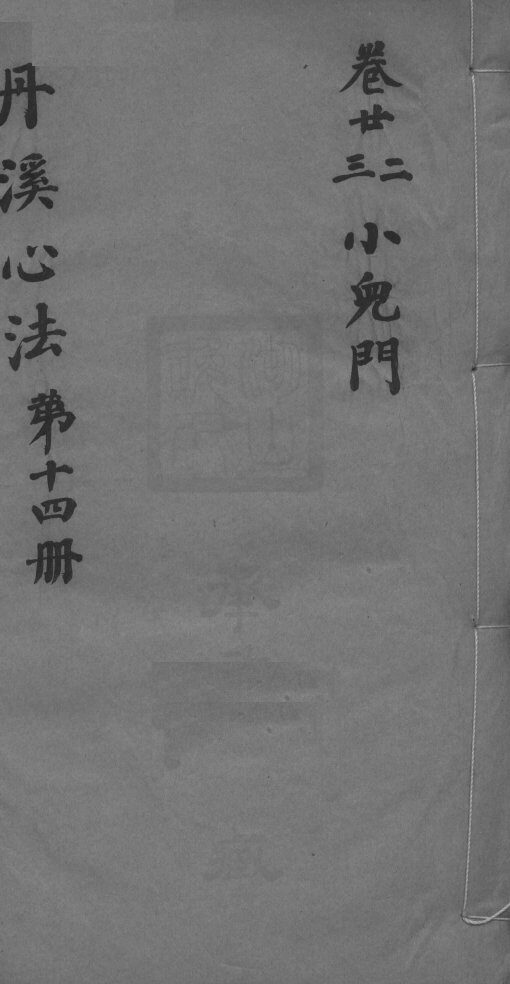 卷廿二三 小兒門
丹溪心法 第十四冊